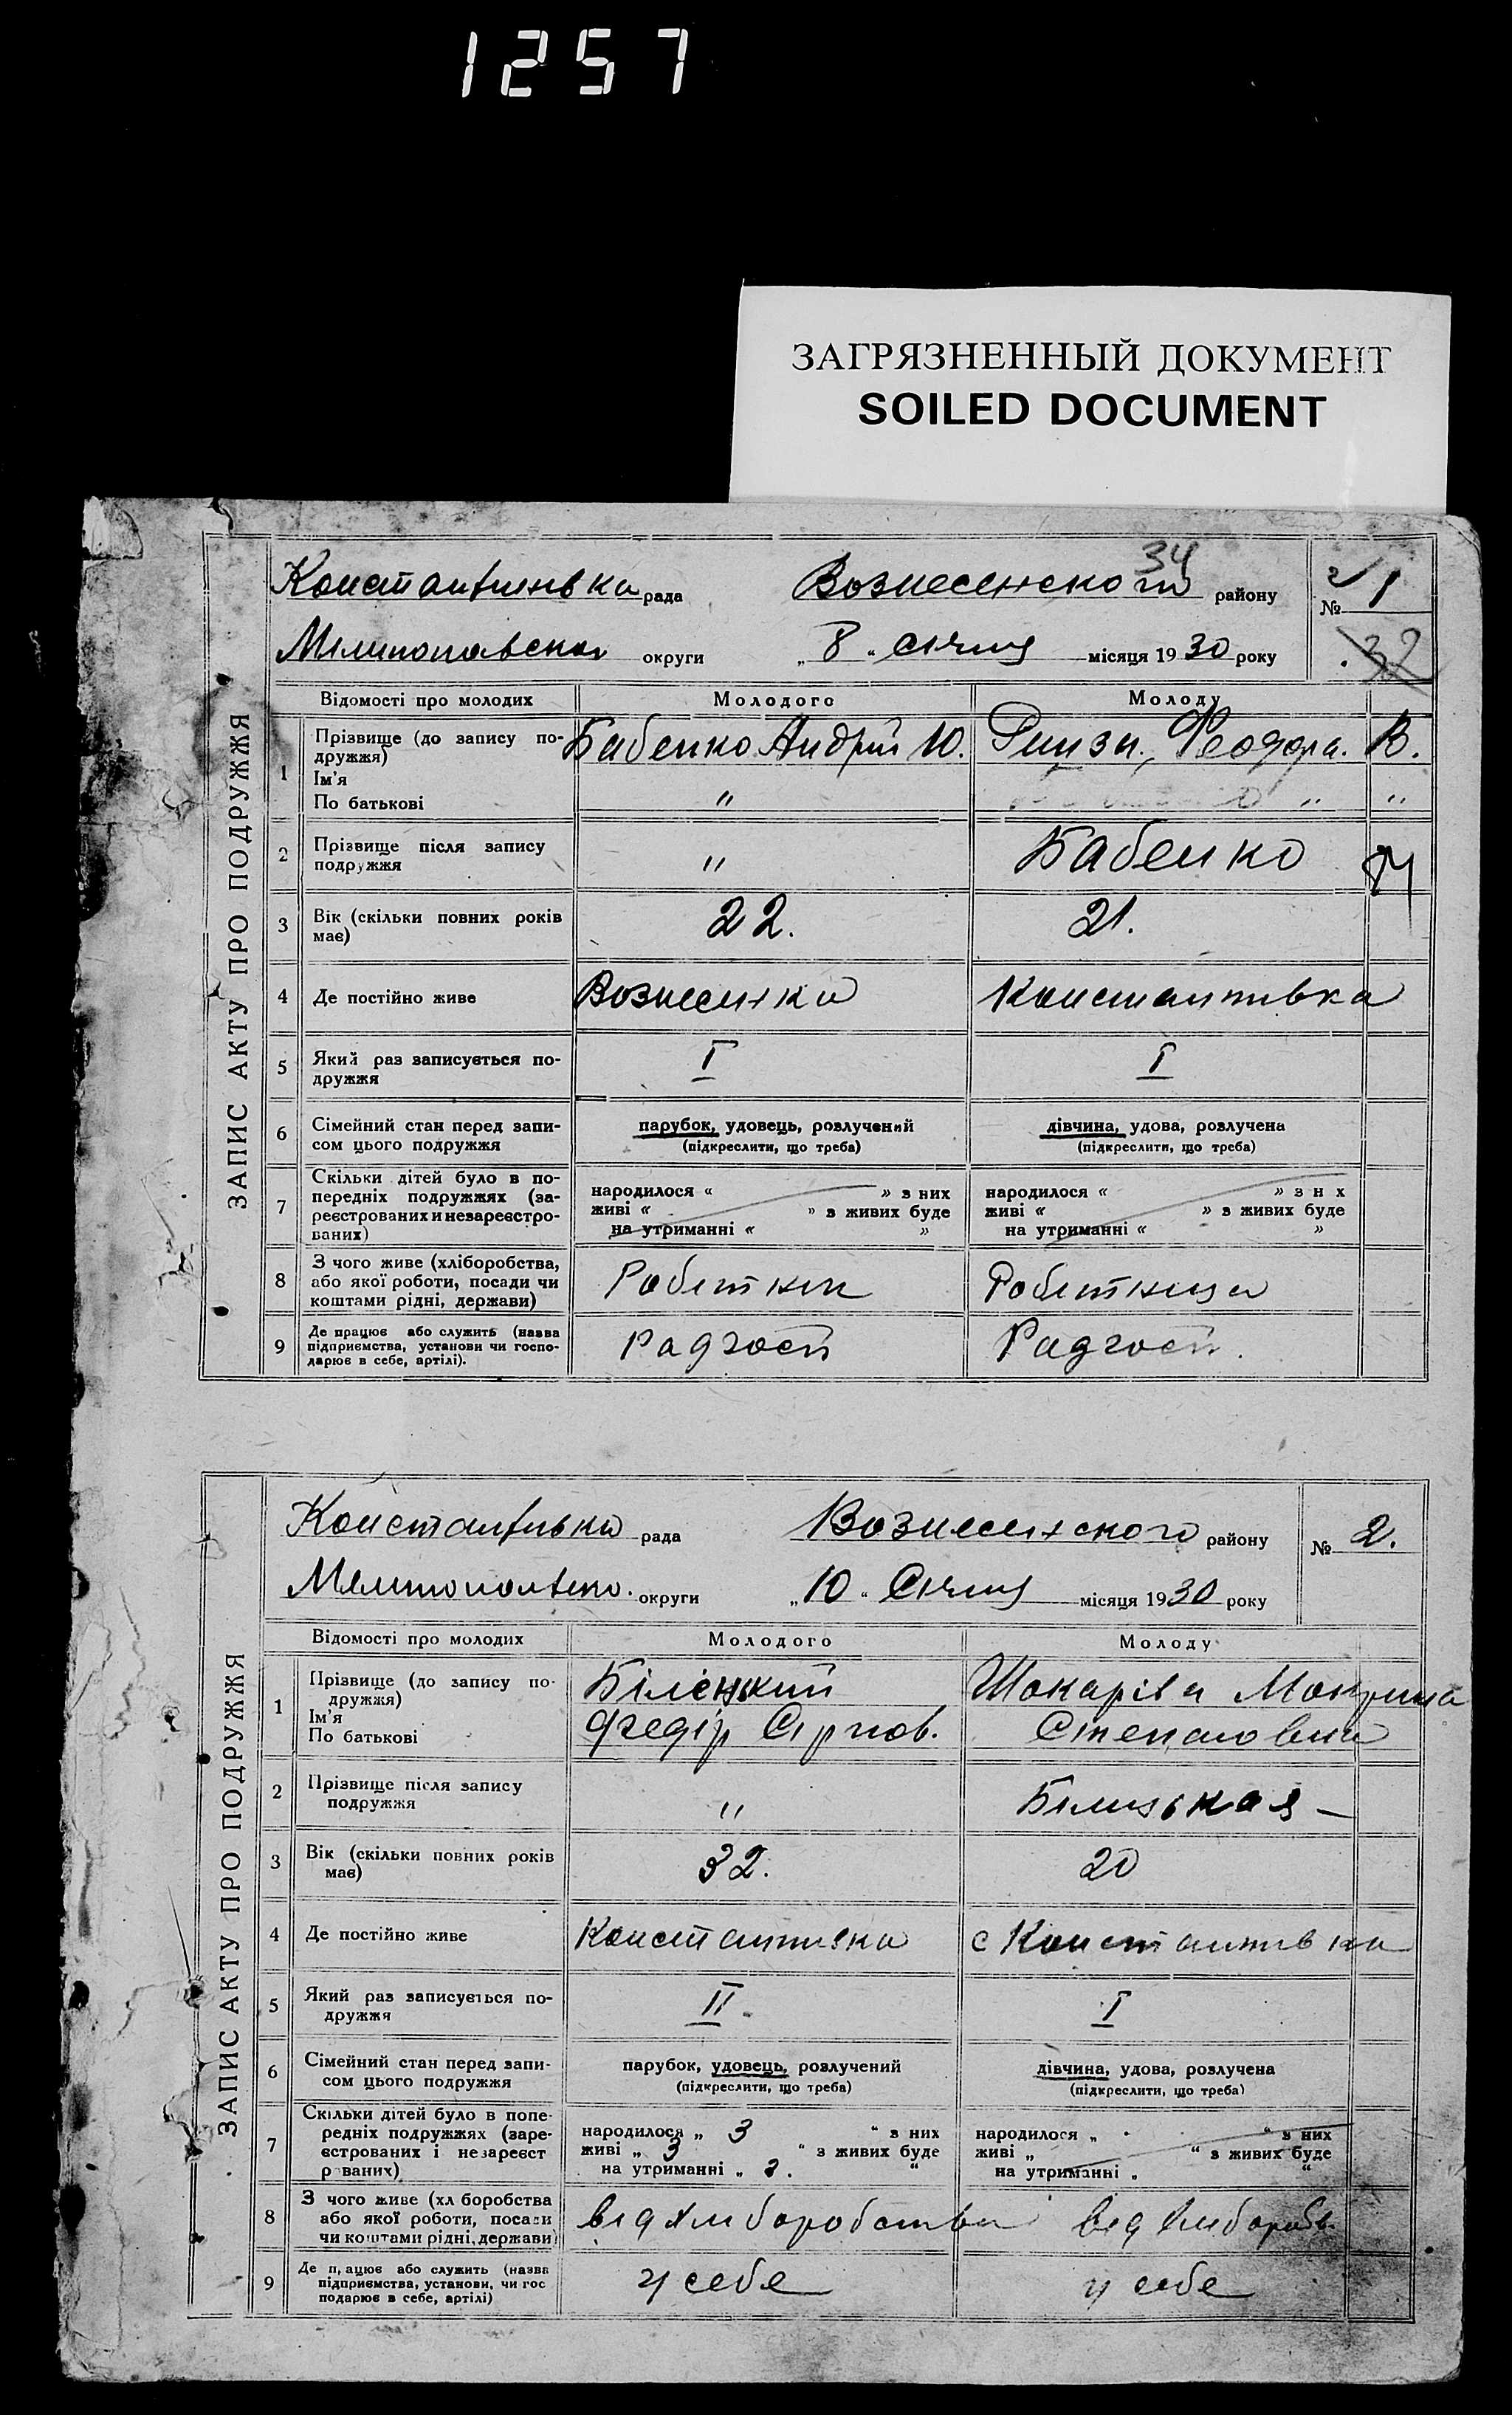 1257
ЗАГРЯЗНЕННЫЙ ДОКУМЕНТ
SOILED DOCUMENT
ЗАПИС АКТУ ПРО ПОДРУЖЖЯ
34
Константинівка рада Вознесенского району № 1
округи „ 8 “ січня місяця 1930 року 32
Відомості про молодих Молодого Молоду
1 Прізвище (до запису по-дружжя) Ім'я По батькові
Бабенко Андрій Ю. Феодора. В.
" " "
2 Прізвище після запису подружжя " Бабенко
3 Вік (скільки повних років має) 22. 21.
4 Де постійно живе Вознесенка Константивка
5 Який раз записується по-дружжя I I
6 Сімейний стан перед запи-сом цього подружжя парубок, удовець, розлучений (підкреслити, що треба) дівчина, удова, розлучена (підкреслити, що треба)
7 Скільки дітей було в по-передніх подружжях (за-реєстрованих и незареєстро-ваних)
народилося « » з них народилося « » з н х
живі « » з живих буде живі « » з живих буде
на утриманні « » на утриманні « »
8 З чого живе (хліборобства, або якої роботи, посади чи коштами рідні, держави) Робітник Робітниця
9 Де працює або служить (назва підприємства, установи чи госпо-дарює в себе, артілі). Радгосп Радгосп.
ЗАПИС АКТУ ПРО ПОДРУЖЖЯ
Константивка рада Вознесенского району № 2.
округи „ 10 “ Січня місяця 1930 року
Відомості про молодих Молодого Молоду
1 Прізвище (до запису по-дружжя) Ім'я По батькові
Біленький Шокаріва Мокрина
Федір Степановна
2 Прізвище після запису подружжя "
3 Вік (скільки повних років має) 32. 20
4 Де постійно живе Константивка с Константивка
5 Який раз записується по-дружжя II I
6 Сімейний стан перед запи-сом цього подружжя парубок, удовець, розлучений (підкреслити, що треба) дівчина, удова, розлучена (підкреслити, що треба)
7 Скільки дітей було в попе-редніх подружжях (заре-єстрованих і незареєст рованих)
народилося „ 3 “ з них народилося „ “ з них
живі „ 3 “ з живих буде живі „ “ з живих буде
на утриманні „ “ на утриманні „ “
8 З чого живе (хл боробства або якої роботи, посади чи коштами рідні, держави) від хлиборобства від хлибороб.
9 Де п, ацює або служить (назва підприємства, установи, чи гос подарює в себе, артілі) у себе у себе